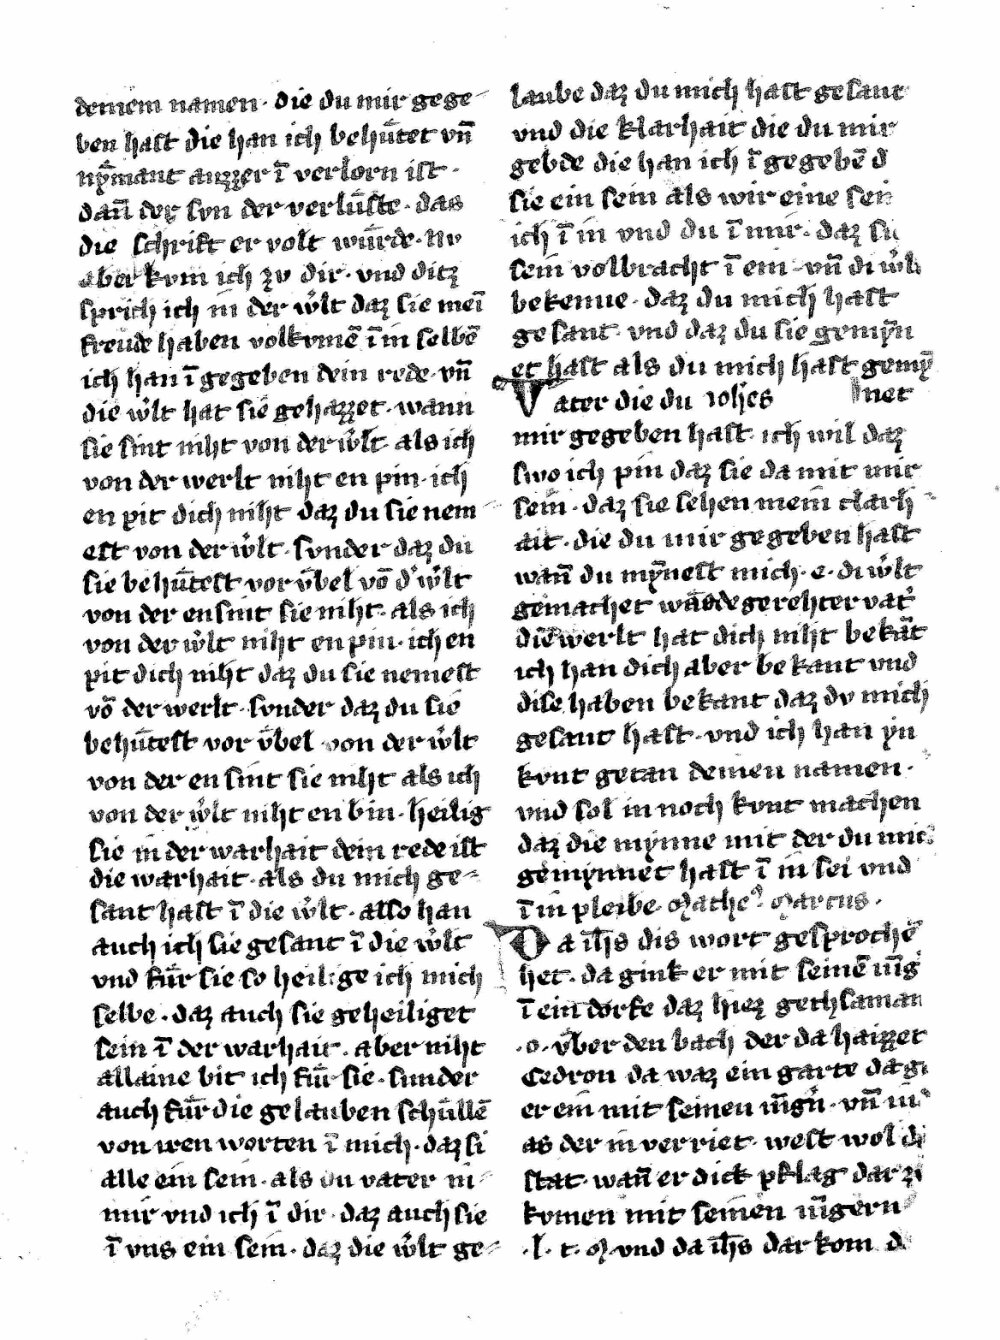 deinem namen · die du mir gege⸗
ben hast die han ich behűtet vn̄
nẏmant auzzer ī verlorn ist ·
dan̄ der svn der verlűste · das
die schrift er volt wűrde · nv
aber kvm ich zv dir · vnd ditz
sprich ich in der w̓lt daz sie mei
freude haben volkvmē ī in selbē
ich han ī gegeben dein rede · vn̄
die w̓lt hat sie gehazzet · wann
sie sint niht von der w̓lt · als ich
von der werlt niht en pin · ich
en pit dich niht daz du sie nem⸗
est von der w̓lt · svnder daz du
sie behűtest vor v̈bel vō d̓ w̓lt
von der en sint sie niht · als ich
von der w̓lt niht en pin · ich en
pit dich niht daz du sie nemest
vō der werlt · svnder daz du sie
behűtest vor v̈bel von der w̓lt
von der en sint sie niht als ich
von der w̓lt niht en bin · heilig
sie in der warhait dein rede ist
die warhait · als du mich ge⸗
sant hast ī die w̓lt · also han
auch ich sie gesant ī die w̓lt
vnd fűr sie so heilige ich mich
selbe · daz auch sie geheiliget
sein ī der warhait · aber niht
allaine bit ich fűr sie · sunder
auch fűr die gelauben schűllē
von iren worten ī mich · daz si
alle ein sein · als du vater in⸗
mir vnd ich ī dir · daz auch sie
ī vns ein sein · daz die w̓lt ge⸗
laube daz du mich hast gesant
vnd die klarhait die du mir
gebde die han ich ī gegebē d
sie ein sein als wir eine sein
ich ī in vnd du ī mir · daz si
sein volbracht ī ein · vn̄ di w̓l
bekenne · daz du mich hast
gesant · vnd daz du sie gemẏn
et hast als du mich hast gemẏ
Vater die du iohes net
mir gegeben hast · ich wil daz
swo ich pin daz sie da mit mir
sein · daz sie sehen mein clarh⸗
ait · die du mir gegeben hast
wan̄ du mẏnest mich · e · di w̓lt
gemachet gerehter vat̓
die werlt hat dich niht bekāt
ich han dich aber bekant vnd
dise haben bekant daz dv mich
gesant hast · vnd ich han yn
kvnt getan deinen namen ·
vnd sol in noch kvnt machen
daz die mẏnne mit der du mic
gemẏnnet hast ī in sei vnd
ī in pleibe · Mathe⁹ Marcus ·
Da ih̄s dis wort gesprochē
het · da gink er mit seinē iūg
ī ein dorfe daz hiez gethsaman
· o · v̈ber den bach der da haizzet
Cedron da waz ein garte da gi
er ein mit seinen iūg̓n · vn̄ iu
as der in verriet · west wol di
stat · wan̄ er dick pflag dar zv
kvmen mit seinen iūgern
· l · t · M · vnd da ih̄s dar kom d